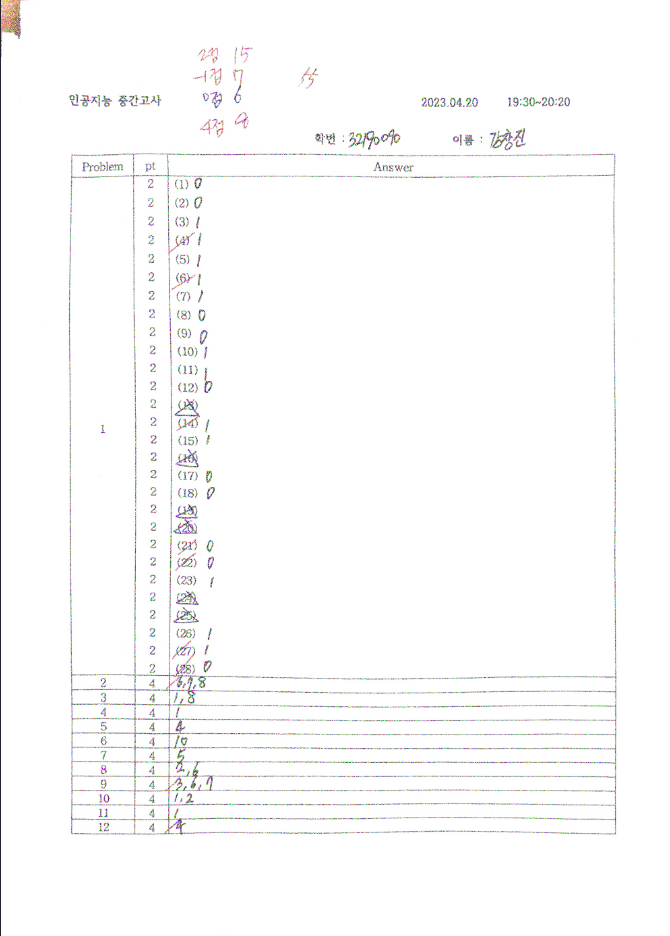 2점 15
-1점 7
55
인공지능 중간고사
0점 6
2023.04.20 19:30~20:20
4점 8
학번 : 32190090 이름 : 김창진
Problem pt Answer
1
2 (1) 0
2 (2) 0
2 (3) 1
2 (4) 1
2 (5) 1
2 (6) 1
2 (7) 1
2 (8) 0
2 (9) 0
2 (10) 1
2 (11) 1
2 (12) 0
2 (13)
2 (14) 1
2 (15) 1
2 (16)
2 (17) 0
2 (18) 0
2 (19)
2 (20)
2 (21) 0
2 (22) 0
2 (23) 1
2 (24)
2 (25)
2 (26) 1
2 (27) 1
2 (28) 0
2 4 3,7,8
3 4 1,8
4 4 1
5 4 4
6 4 10
7 4 5
8 4 2,6
9 4 3,6,7
10 4 1,2
11 4 1
12 4 4